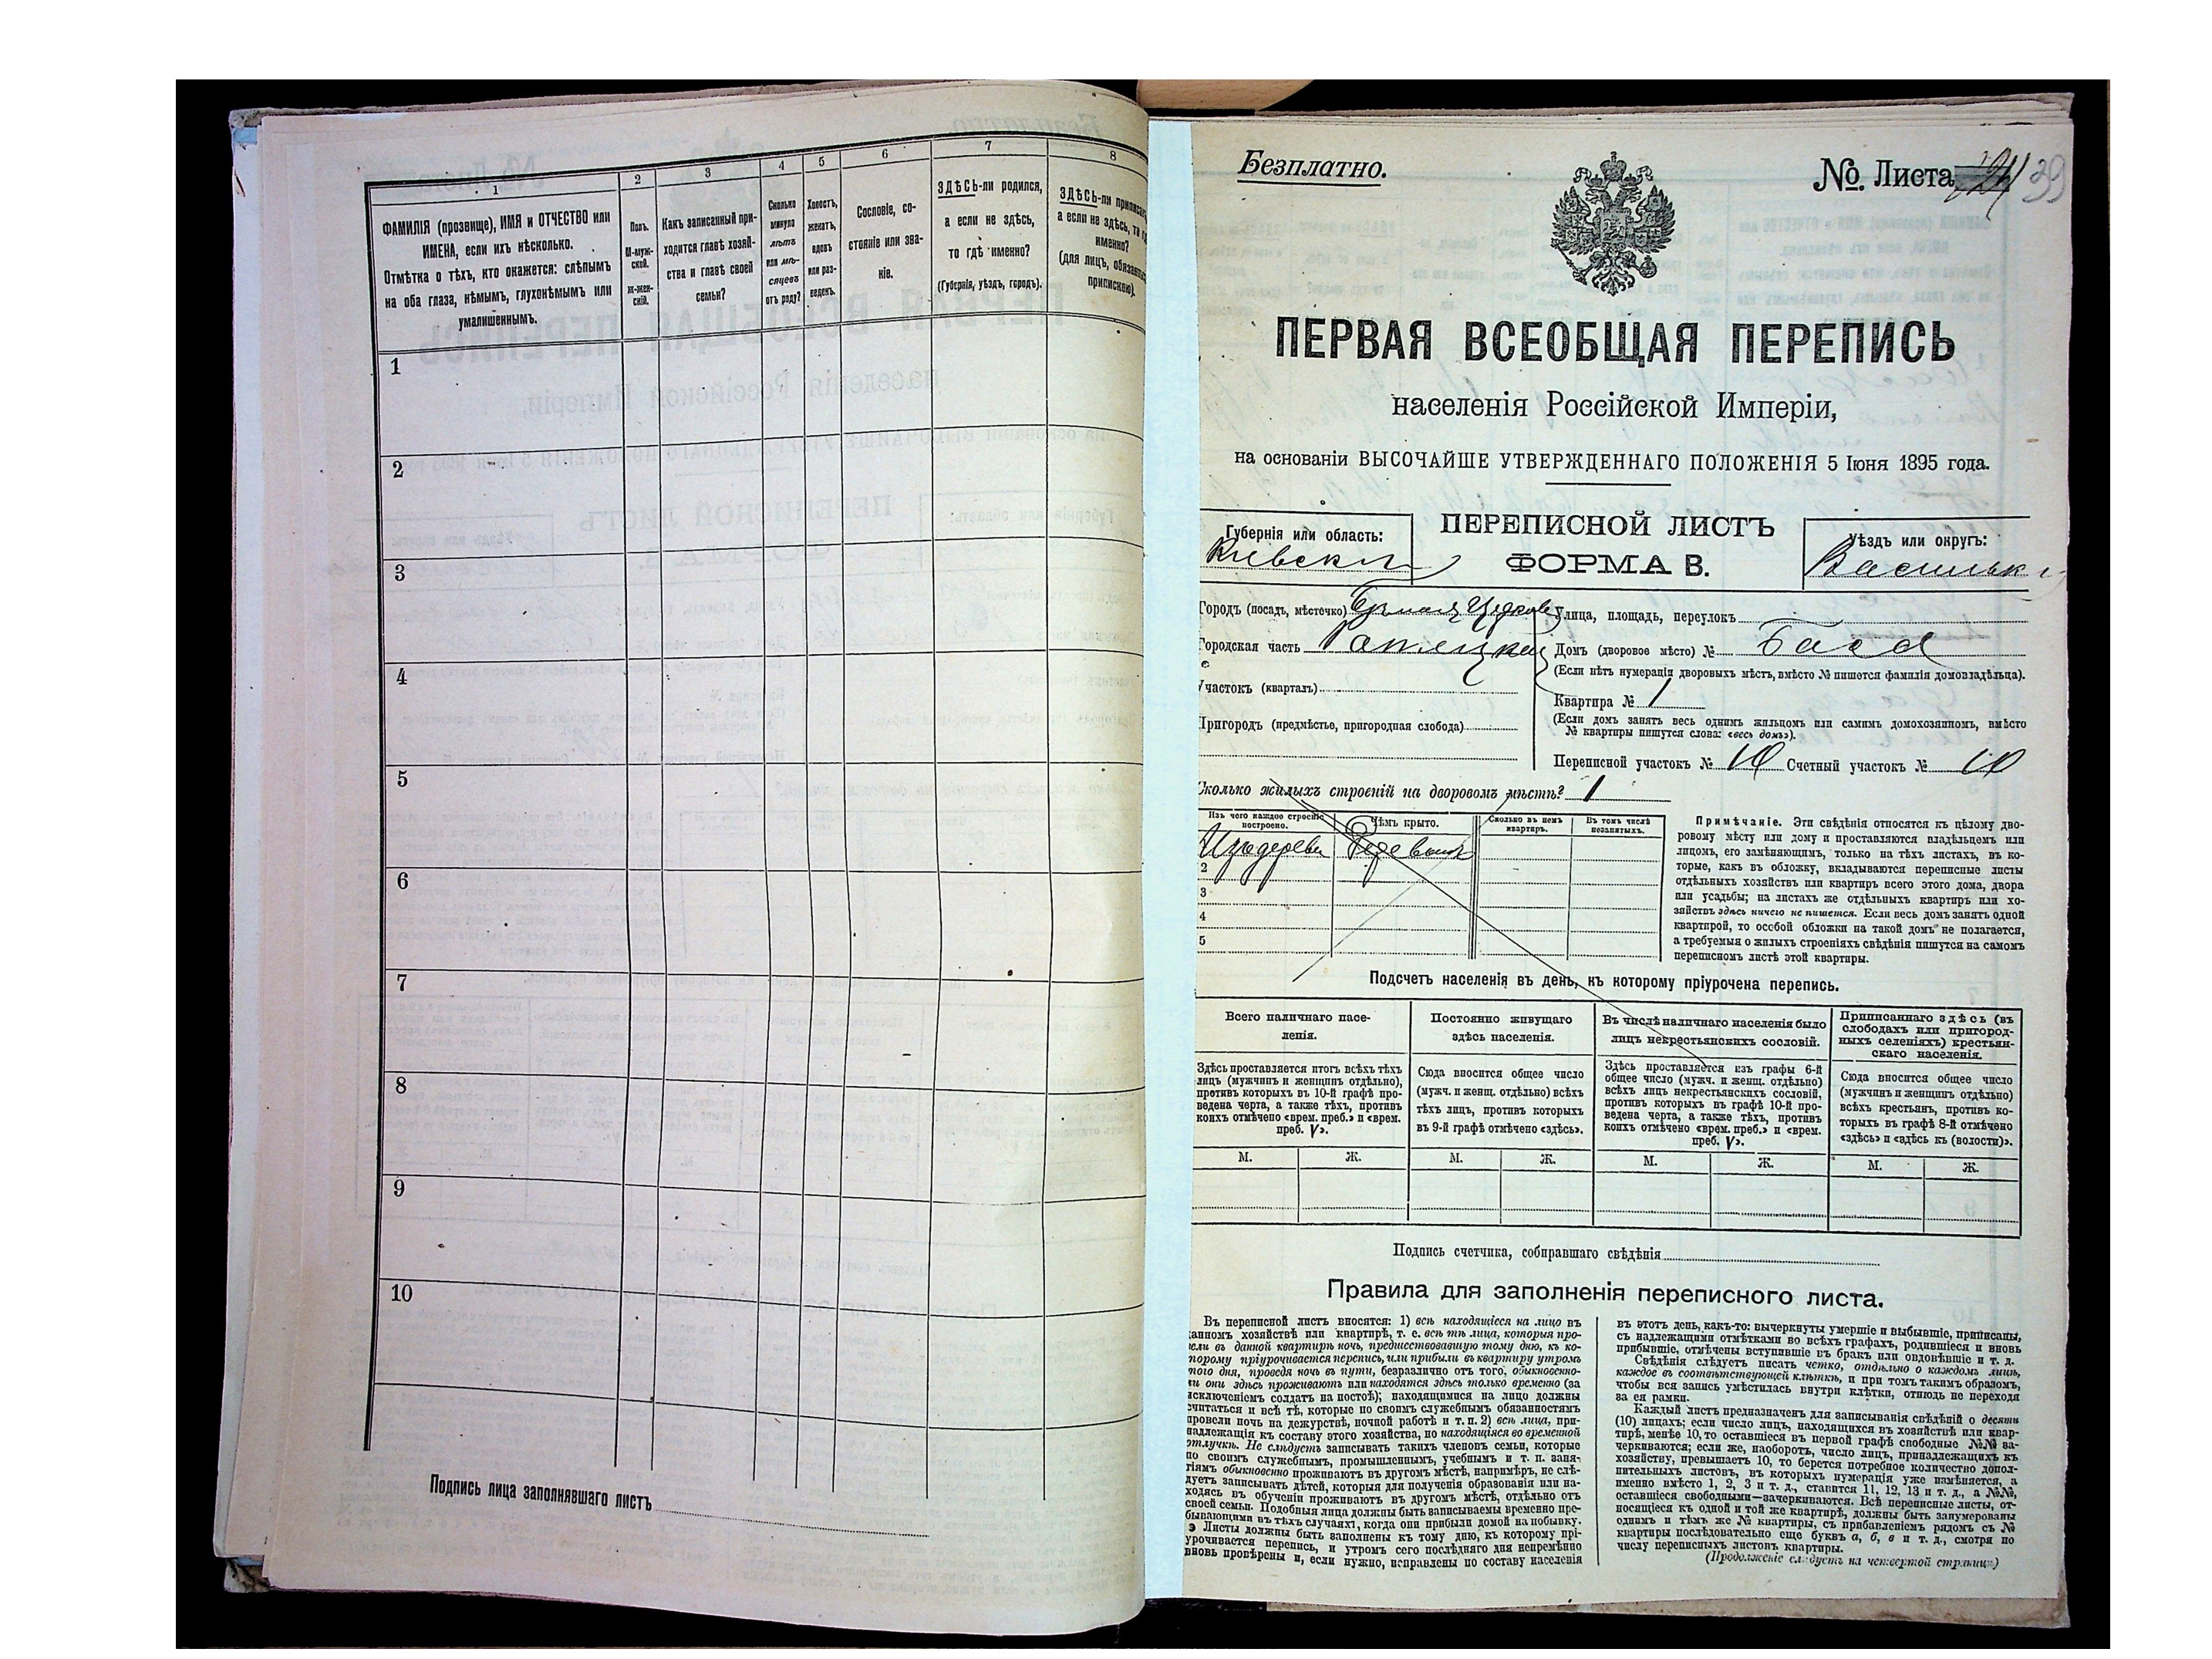 1
2
3
4
5
6
7
8
ФАМИЛІЯ (прозвище), ИМЯ и ОТЧЕСТВО или
ИМЕНА, если ихъ нѣсколько.
Отмѣтка о тѣхъ, кто окажется: слѣпымъ
на оба глаза, нѣмымъ, глухонѣмымъ или
умалишеннымъ.
Полъ.
М-муж-
ской.
ж-жен-
скій.
Какъ записанный при-
ходится главѣ хозяй-
ства и главѣ своей
семьи?
Сколько
минуло
лѣтъ
или мѣ-
сяцевъ
отъ роду?
Холостъ,
женатъ,
вдовъ
или раз-
веденъ.
Сословіе, со-
стояніе или зва-
ніе.
ЗДѢСЬ-ли родился,
а если не здѣсь,
то гдѣ именно?
(Губернія, уѣздъ, городъ).
ЗДѢСЬ-ли приписанъ,
а если не здѣсь, то гдѣ
именно?
(для лицъ,
припискою).
1
2
3
4
5
6
7
8
9
10
Подпись лица заполнявшаго листъ
Безплатно.
№ Листа 39
ПЕРВАЯ ВСЕОБЩАЯ ПЕРЕПИСЬ
населенія Россійской Имперіи,
на основаніи ВЫСОЧАЙШЕ УТВЕРЖДЕННАГО ПОЛОЖЕНІЯ 5 Іюня 1895 года.
ПЕРЕПИСНОЙ ЛИСТЪ
ФОРМА В.
Губернія или область:
Кіевская
Уѣздъ или округъ:
Васильк
Городъ (посадъ, мѣстечко) Бѣлая Церковь
Городская часть
Участокъ (кварталъ)
Пригородъ (предмѣстье, пригородная слобода)
Улица, площадь, переулокъ
Домъ (дворовое мѣсто) № Баса
(Если нѣтъ нумераціи дворовыхъ мѣстъ, вмѣсто № пишется фамилія домовладѣльца).
Квартира № 1
(Если домъ занятъ весь однимъ жильцомъ или самимъ домохозяиномъ, вмѣсто
№ квартиры пишутся слова: «весь домъ»).
Переписной участокъ № 10 Счетный участокъ № 10
Сколько жилыхъ строеній на дворовомъ мѣстѣ? 1
Изъ чего каждое строеніе
построено.
Чѣмъ крыто.
Сколько въ немъ
квартиръ.
Въ томъ числѣ
незанятыхъ.
Изъ дерева
2
3
4
5
Примѣчаніе. Эти свѣдѣнія относятся къ цѣлому дво-
ровому мѣсту или дому и проставляются владѣльцемъ или
лицомъ, его замѣняющимъ, только на тѣхъ листахъ, въ ко-
торые, какъ въ обложку, вкладываются переписные листы
отдѣльныхъ хозяйствъ или квартиръ всего этого дома, двора
или усадьбы; на листахъ же отдѣльныхъ квартиръ или хо-
зяйствъ здѣсь ничего не пишется. Если весь домъ занятъ одной
квартирой, то особой обложки на такой домъ не полагается,
а требуемыя о жилыхъ строеніяхъ свѣдѣнія пишутся на самомъ
переписномъ листѣ этой квартиры.
Подсчетъ населенія въ день, къ которому пріурочена перепись.
Всего наличнаго насе-
ленія.
Здѣсь проставляется итогъ всѣхъ тѣхъ
лицъ (мужчинъ и женщинъ отдѣльно),
противъ которыхъ въ 10-й графѣ про-
ведена черта, а также тѣхъ, противъ
коихъ отмѣчено «врем. преб.» и «врем.
преб. V».
Постоянно живущаго
здѣсь населенія.
Сюда вносится общее число
(мужч. и женщ. отдѣльно) всѣхъ
тѣхъ лицъ, противъ которыхъ
въ 9-й графѣ отмѣчено «здѣсь».
Въ числѣ наличнаго населенія было
лицъ некрестьянскихъ сословій.
Здѣсь проставляется изъ графы 6-й
общее число (мужч. и женщ. отдѣльно)
всѣхъ лицъ некрестьянскихъ сословій,
противъ которыхъ въ графѣ 10-й про-
ведена черта, а также тѣхъ, противъ
коихъ отмѣчено «врем. преб.» и «врем.
преб. V».
Приписаннаго здѣсь (въ
слободахъ или пригород-
ныхъ селеніяхъ) крестьян-
скаго населенія.
Сюда вносится общее число
(мужчинъ и женщинъ отдѣльно)
всѣхъ крестьянъ, противъ ко-
торыхъ въ графѣ 8-й отмѣчено
«здѣсь» и «здѣсь къ (волости)».
М. Ж. М. Ж. М. Ж. М. Ж.
Подпись счетчика, собиравшаго свѣдѣнія
Правила для заполненія переписного листа.
Въ переписной листъ вносятся: 1) всѣ находящіеся на лицо въ
данномъ хозяйствѣ или квартирѣ, т. е. всѣ тѣ лица, которыя про-
вели въ данной квартирѣ ночь, предшествовавшую тому дню, къ ко-
торому пріурочивается перепись, или прибыли въ квартиру утромъ
того дня, проведя ночь въ пути, безразлично отъ того, обыкновенно-
ли они здѣсь проживаютъ или находятся здѣсь только временно (за
исключеніемъ солдатъ на постоѣ); находящимися на лицо должны
считаться и всѣ тѣ, которые по своимъ служебнымъ обязанностямъ
провели ночь на дежурствѣ, ночной работѣ и т. п. 2) всѣ лица, при-
надлежащія къ составу этого хозяйства, но находящіяся во временной
отлучкѣ. Не слѣдуетъ записывать такихъ членовъ семьи, которые
по своимъ служебнымъ, промышленнымъ, учебнымъ и т. п. заня-
тіямъ обыкновенно проживаютъ въ другомъ мѣстѣ, напримѣръ, не слѣ-
дуетъ записывать дѣтей, которыя для полученія образованія или на-
ходясь въ обученіи проживаютъ въ другомъ мѣстѣ, отдѣльно отъ
своей семьи. Подобныя лица должны быть записываемы временно пре-
бывающими въ тѣхъ случаяхъ, когда они прибыли домой на побывку.
Листы должны быть заполнены къ тому дню, къ которому прі-
урочивается перепись, и утромъ сего послѣдняго дня непремѣнно
вновь провѣрены и, если нужно, исправлены по составу населенія
въ этотъ день, какъ-то: вычеркнуты умершіе и выбывшіе, приписаны,
съ надлежащими отмѣтками во всѣхъ графахъ, родившіеся и вновь
прибывшіе, отмѣчены вступившіе въ бракъ или овдовѣвшіе и т. д.
Свѣдѣнія слѣдуетъ писать четко, отдѣльно о каждомъ лицѣ,
каждое въ соотвѣтствующей клѣткѣ, и при томъ такимъ образомъ,
чтобы вся запись умѣстилась внутри клѣтки, отнюдь не переходя
за ея рамки.
Каждый листъ предназначенъ для записыванія свѣдѣній о десяти
(10) лицахъ; если число лицъ, находящихся въ хозяйствѣ или квар-
тирѣ, менѣе 10, то оставшіеся въ первой графѣ свободные №№ за-
черкиваются; если же, наоборотъ, число лицъ, принадлежащихъ къ
хозяйству, превышаетъ 10, то берется потребное количество допол-
нительныхъ листовъ, въ которыхъ нумерація уже измѣняется, а
именно вмѣсто 1, 2, 3 и т. д., ставятся 11, 12, 13 и т. д., а №№,
оставшіеся свободными—зачеркиваются. Всѣ переписные листы, от-
носящіеся къ одной и той же квартирѣ, должны быть занумерованы
однимъ и тѣмъ же № квартиры, съ прибавленіемъ рядомъ съ №
квартиры послѣдовательно еще буквъ а, б, в и т. д., смотря по
числу переписныхъ листовъ квартиры.
(Продолженіе слѣдуетъ на четвертой страницѣ)